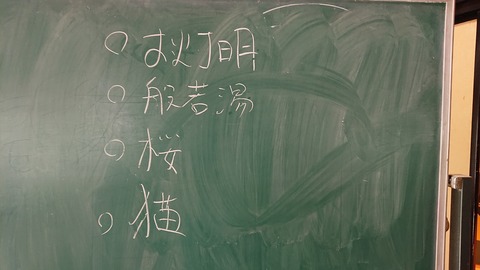 ○ お灯明
○ 般若湯
○ 桜
○ 猫